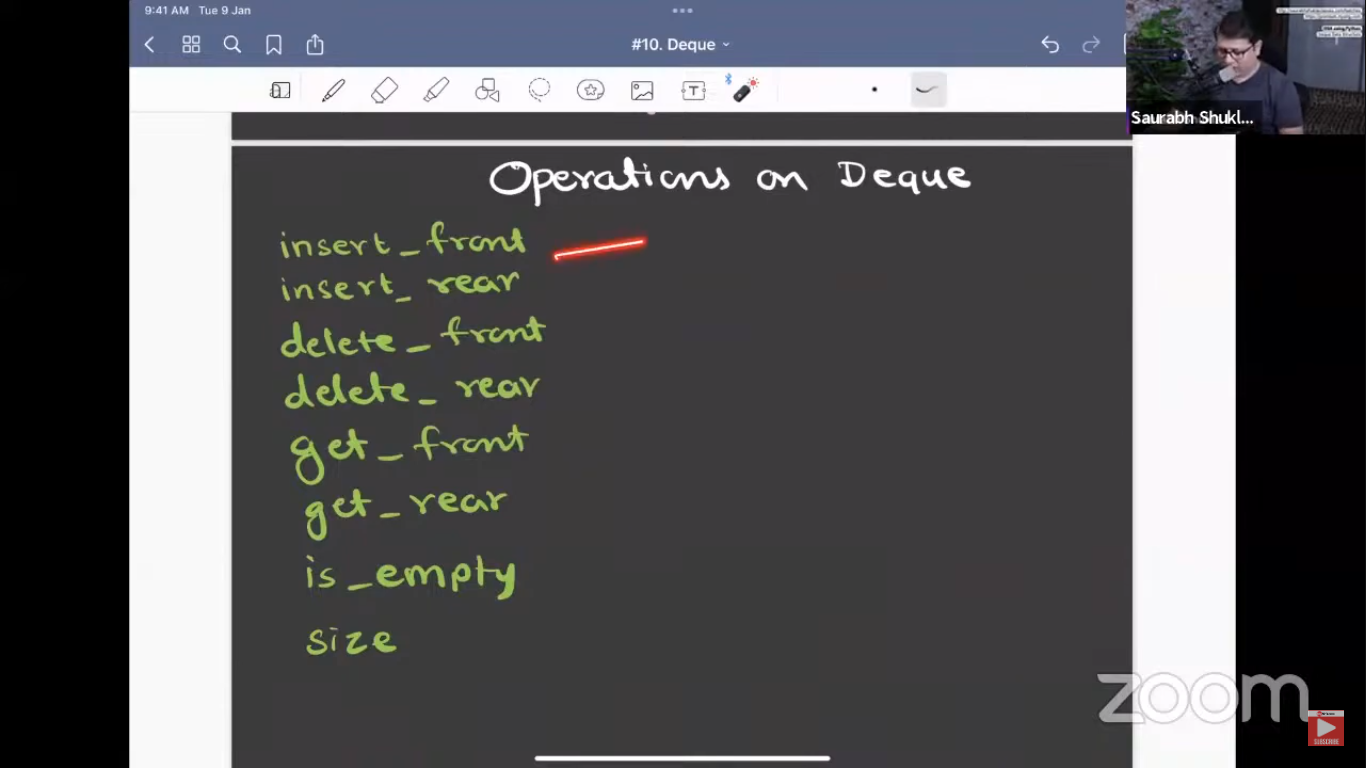 9:41 AM Tue 9 Jan
#10. Deque
T
Saurabh Shukl...
Operations on Deque
insert_front
insert_rear
delete_front
delete_rear
get_front
get_rear
is_empty
size
zoom
SUBSCRIBE